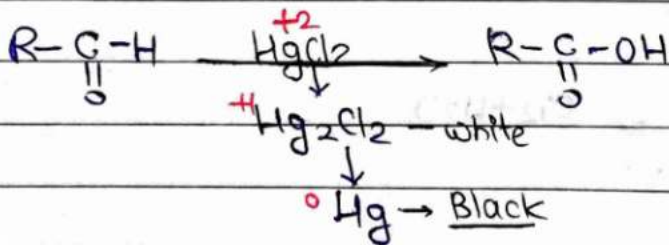 +2
R–C–H HgCl2 → R–C–OH
|| ↓ ||
O O
+1 Hg2Cl2 – white
↓
0 Hg → Black